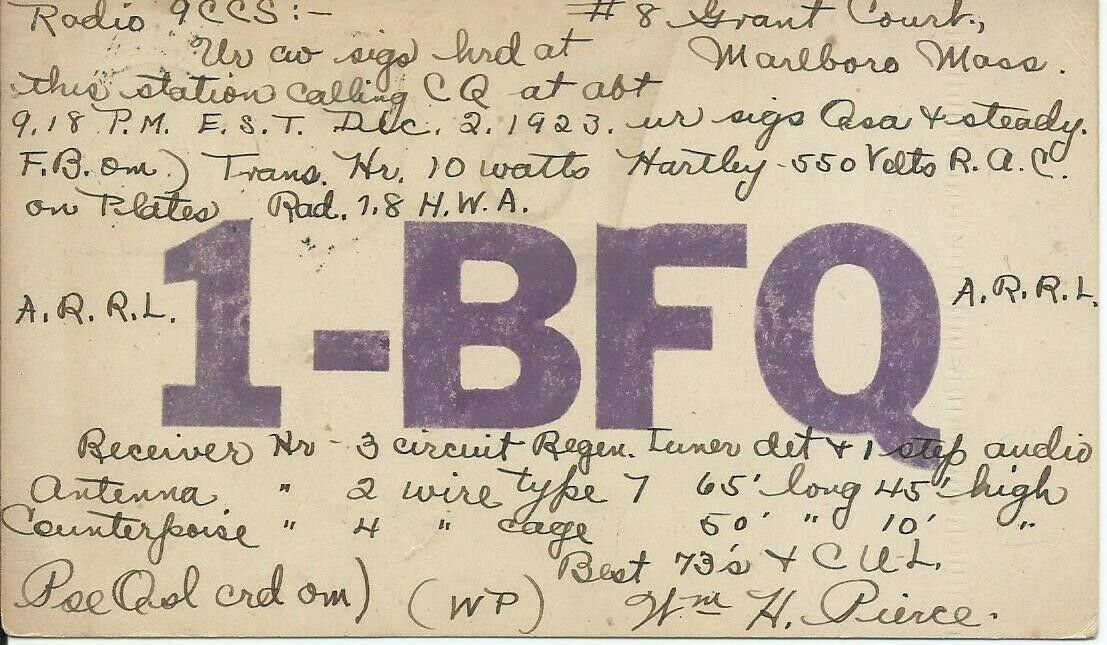 Radio 9CCS:- # 8 Grant Court,
Ur cw sigs hrd at Marlboro Mass.
this station calling CQ at abt
9.18 P.M. E.S.T. Dec. 2. 1923. ur sigs Qsa & steady.
F.B. om.) Trans. Hr. 10 watts Hartley - 550 Volts R.A.C.
on Plates Rad. 1.8 H.W.A.
1-BFQ
A.R.R.L. A.R.R.L.
Receiver Hr - 3 circuit Regen. Tuner det & 1 step audio
Antenna " 2 wire type 7 65' long 45' high
Counterpoise " 4 " cage 50' " 10' "
Best 73's & C U L.
Pse Qsl crd om) (WP) Wm H. Pierce.